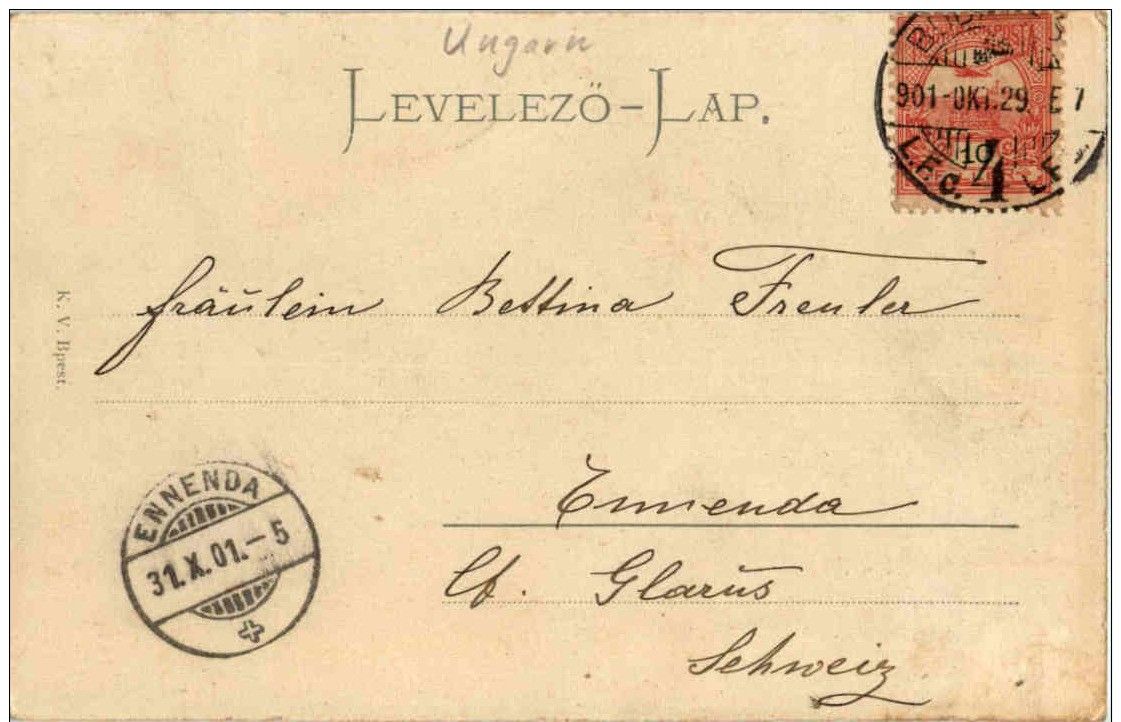 Ungarn
LEVELEZŐ-LAP.
BUDAPEST
901-OKT.29. E 7
10
4
Fräulein Bettina Freuler
K. V. Bpest.
Ennenda
Ct. Glarus
Schweiz
ENNENDA
31.X.01.-5